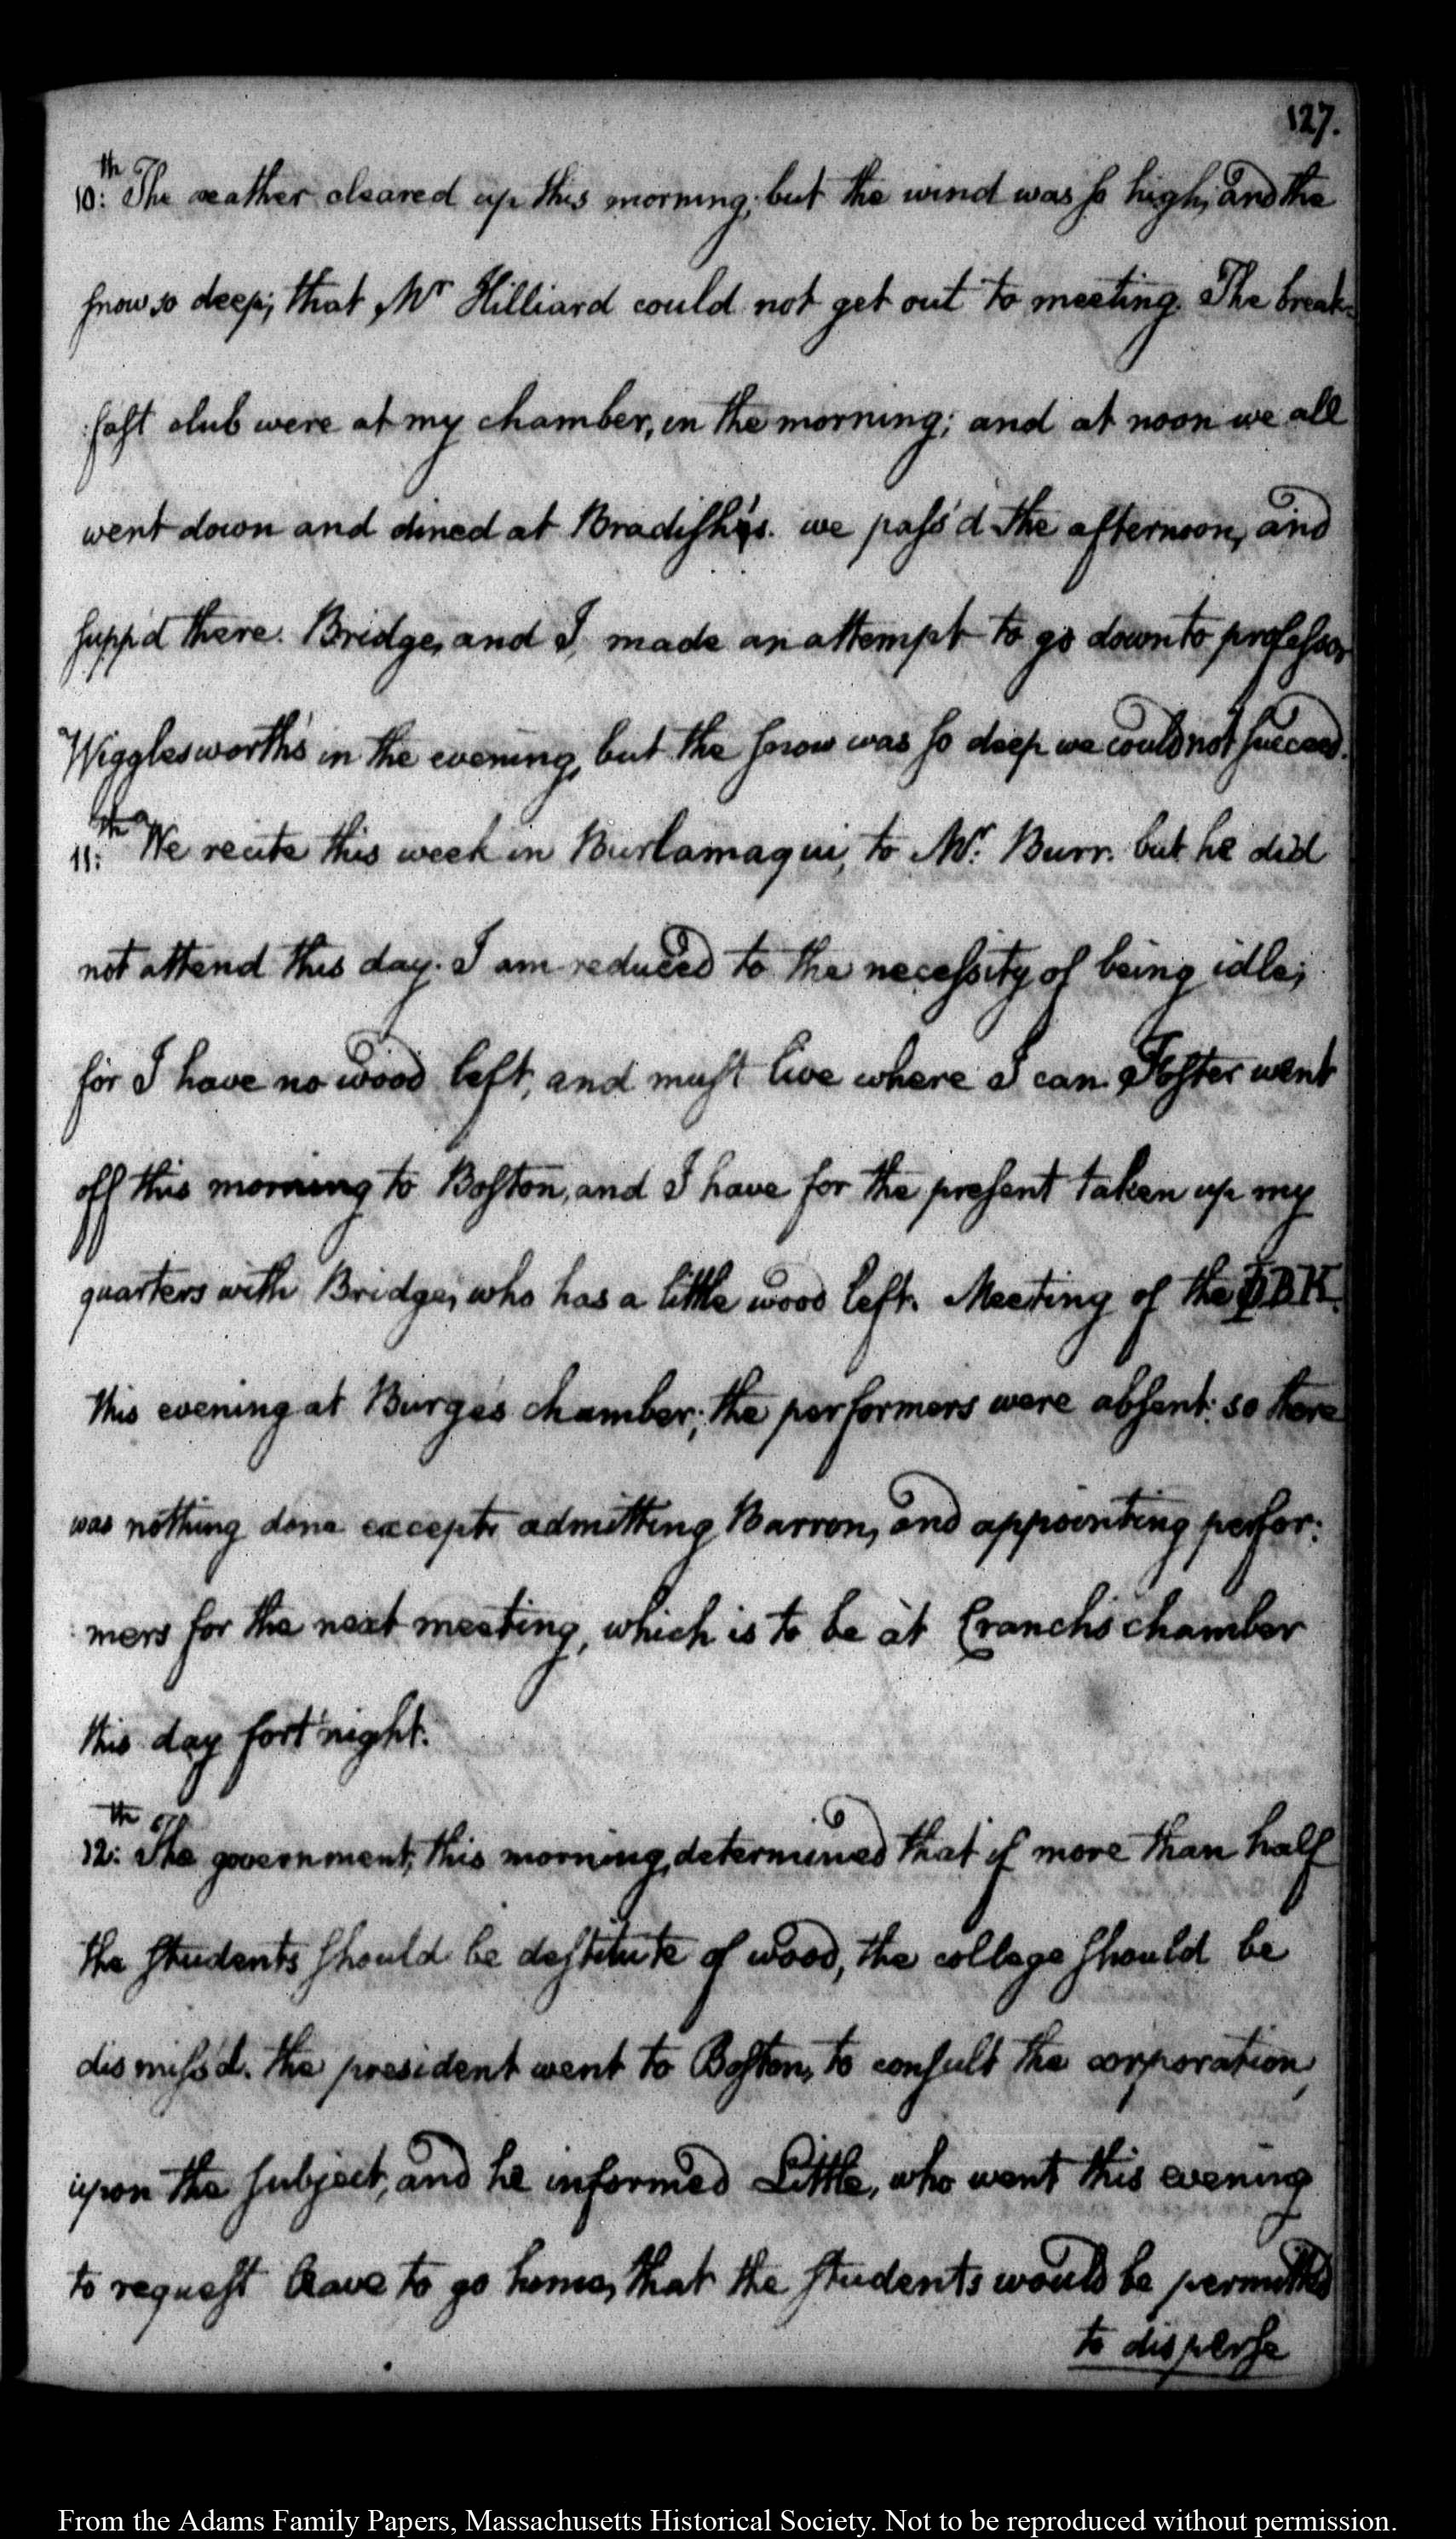 127.
10:th The weather cleared up this morning; but the wind was so high, and the
snow so deep; that Mr Hilliard could not get out to meeting. The break-
:fast club were at my chamber, in the morning; and at noon we all
went down and dined at Bradish's. we pass'd the afternoon, and
supp'd there. Bridge, and I, made an attempt to go down to professor
Wigglesworth's in the evening, but the snow was so deep we could not succeed.
11:th We recite this week in Burlamaqui, to Mr. Burr. but he did
not attend this day. I am reduced to the necessity of being idle;
for I have no wood left, and must live where I can. Foster went
off this morning to Boston, and I have for the present taken up my
quarters with Bridge, who has a little wood left. Meeting of the ΦBK.
this evening at Burge's chamber; the performers were absent: so there
was nothing done except admitting Barron, and appointing perfor:
:mers for the next meeting, which is to be at Cranch's chamber
this day fort'night.
12:th The government, this morning, determined that if more than half
the students should be destitute of wood, the college should be
dismiss'd. the president went to Boston, to consult the corporation,
upon the subject, and he informed Little, who went this evening
to request leave to go home, that the students would be permitted
to disperse
From the Adams Family Papers, Massachusetts Historical Society. Not to be reproduced without permission.